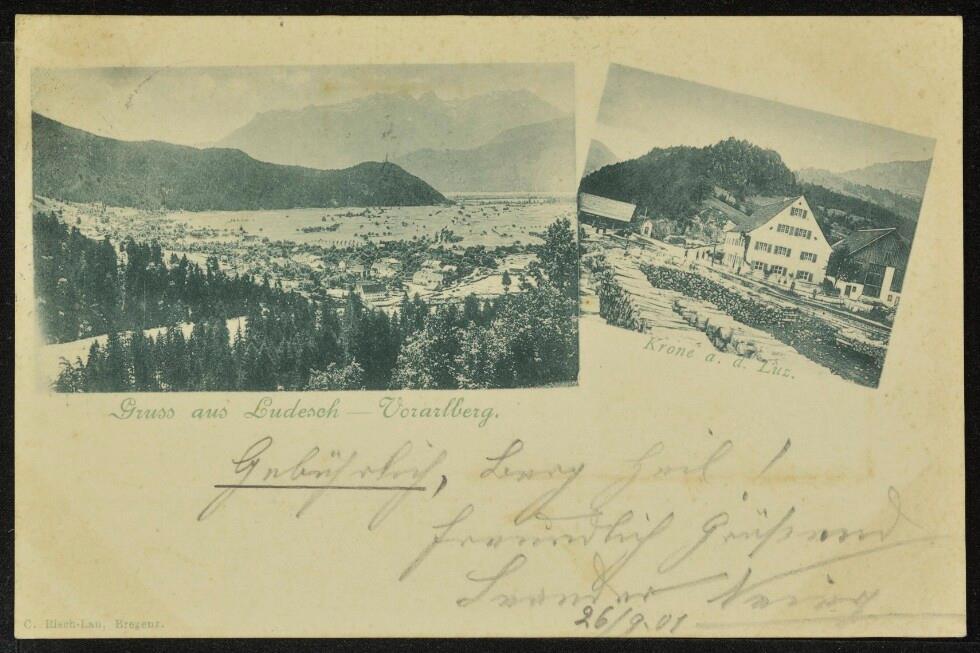 Krone a. d. Luz.
Gruss aus Ludesch — Vorarlberg.
Gebührlich, Berg Heil!
freundlich Grüßend
Leander
26/9.01
C. Risch-Lau, Bregenz.